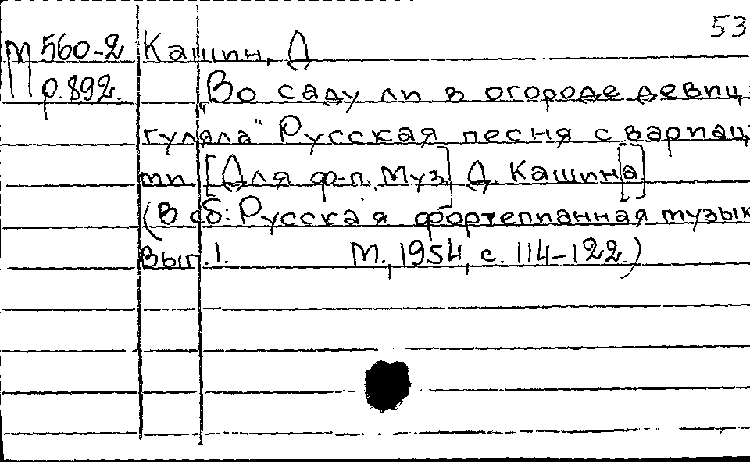 53
М 560-2 Кашин, Д
р.892. "Во саду ли в огороде девиц
гуляла" Русская песня с вариац
ми [Для ф-п. Муз] Д. Кашин[а]
(В сб: Русская фортепианная музык
вып.1. М., 1954, с. 114-122)